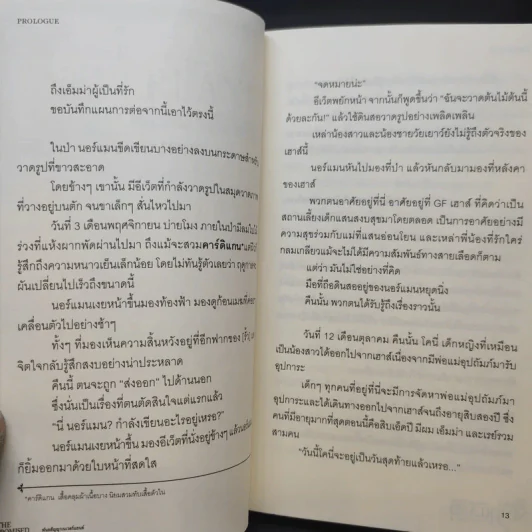 PROLOGUE
ถึงเอ็มม่าผู้เป็นที่รัก
ขอบันทึกแผนการต่อจากนี้เอาไว้ตรงนี้
ในป่า นอร์แมนขีดเขียนบางอย่างลงบนกระดาษสำหรับ
วาดรูปที่ขาวสะอาด
โดยข้างๆ เขานั้น มีอีเว็ตที่กำลังวาดรูปในสมุดวาดภาพ
ที่วางอยู่บนตัก จนขาเล็กๆ สั่นไหวไปมา
วันที่ 3 เดือนพฤศจิกายน บ่ายโมง ภายในป่ามีลม
ร่วงที่แห้งผากพัดผ่านไปมา ถึงแม้จะสวมคาร์ดิแกน*
รู้สึกถึงความหนาวเย็นเล็กน้อย โดยไม่ทันรู้ตัวเลยว่า
ผันเปลี่ยนไปเร็วถึงขนาดนี้
นอร์แมนเงยหน้าขึ้นมองท้องฟ้า มองดูก้อนเมฆที่
เคลื่อนตัวไปอย่างช้าๆ
ทั้งๆ ที่มองเห็นความสิ้นหวังอยู่ที่อีกฟากของ
จิตใจกลับรู้สึกสงบอย่างน่าประหลาด
คืนนี้ ตนจะถูก "ส่งออก" ไปด้านนอก
ซึ่งนั่นเป็นเรื่องที่ตนตัดสินใจแต่แรกแล้ว
"นี่ นอร์แมน? กำลังเขียนอะไรอยู่เหรอ?"
นอร์แมนเงยหน้าขึ้น มองอีเว็ตที่นั่งอยู่ข้างๆ แล้ว
ก็ยิ้มออกมาด้วยใบหน้าที่สดใส
*คาร์ดิแกน เสื้อคลุมผ้าเนื้อบาง นิยมสวมทับเสื้อตัวใน
THE
PROMISED
พันธสัญญาเนเวอร์แลนด์
"จดหมายน่ะ"
อีเว็ตพยักหน้า จากนั้นก็พูดขึ้นว่า "ฉันจะวาดต้นไม้ต้นนี้
ด้วยละกัน!" แล้วใช้ดินสอวาดรูปอย่างเพลิดเพลิน
เหล่าน้องสาวและน้องชายวัยเยาว์ยังไม่รู้ถึงตัวจริงของ
เฮาส์นี้
นอร์แมนหันไปมองที่ป่า แล้วหันกลับมามองที่หลังคา
ของเฮาส์
พวกตนอาศัยอยู่ที่นี่ อาศัยอยู่ที่ GF เฮาส์ ที่คิดว่าเป็น
สถานเลี้ยงเด็กแสนสงบสุขมาโดยตลอด เป็นการอาศัยอย่างมี
ความสุขร่วมกับแม่ที่แสนอ่อนโยน และเหล่าพี่น้องที่รักใคร่
กลมเกลียวแม้จะไม่ได้มีความสัมพันธ์ทางสายเลือดก็ตาม
แต่ว่า มันไม่ใช่อย่างที่คิด
มือที่ถือดินสออยู่ของนอร์แมนหยุดนิ่ง
คืนนั้น พวกตนได้รับรู้ถึงเรื่องราวนั้น
วันที่ 12 เดือนตุลาคม คืนนั้น โคนี่ เด็กหญิงที่เหมือน
เป็นน้องสาวได้ออกไปจากเฮาส์เนื่องจากมีพ่อแม่อุปถัมภ์มารับ
อุปการะ
เด็กๆ ทุกคนที่อยู่ที่นี่จะมีการจัดหาพ่อแม่อุปถัมภ์มา
อุปการะและได้เดินทางออกไปจากเฮาส์จนถึงอายุสิบสองปี ซึ่ง
คนที่มีอายุมากที่สุดตอนนี้คือสิบเอ็ดปี มีผม เอ็มม่า และเรย์รวม
สามคน
"วันนี้โคนี่จะอยู่เป็นวันสุดท้ายแล้วเหรอ..."
13